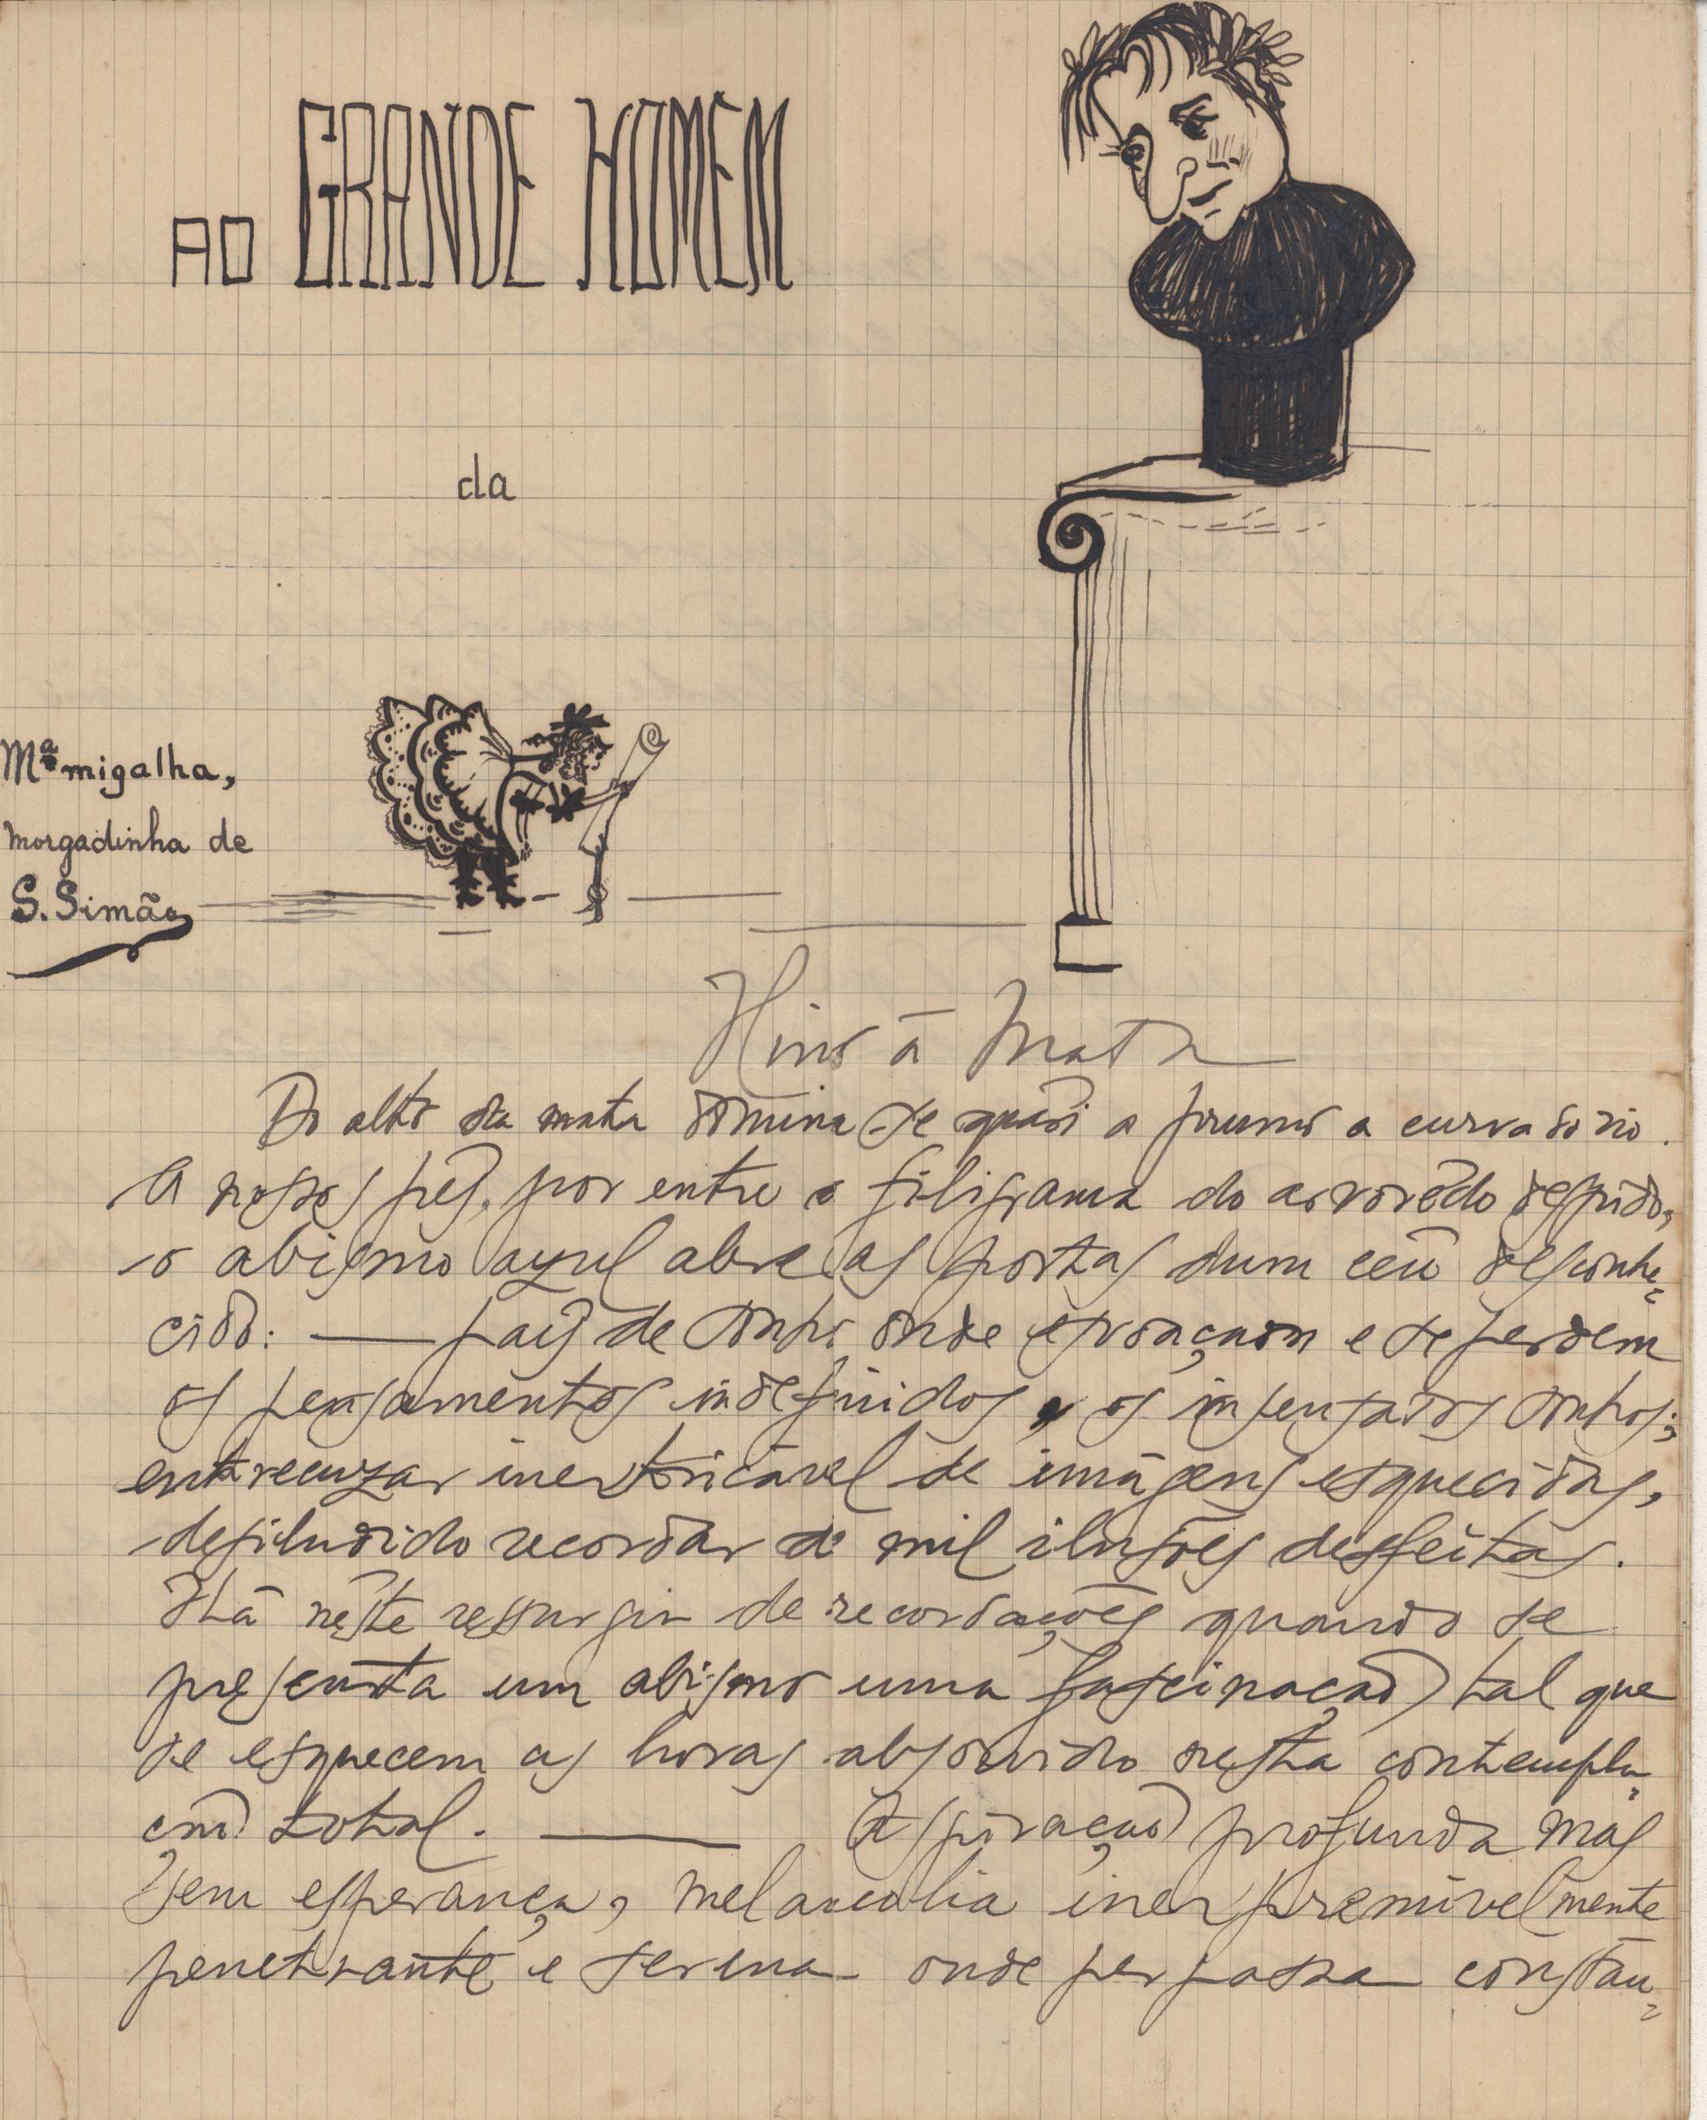 AO GRANDE HOMEM
da
Mª migalha,
morgadinha de
S. Simão
Hino á Mata
Do alto da mata domina-se quasi a prumo a curva do rio.
A nossos pés, por entre a filigrama do arvorêdo despido,
o abismo azul abre as portas dum ceu desconhe=
cido: — paiz de sonho onde esvoaçam e se perdem
os pensamentos indefinidos, os insensatos sonhos;
entrecruzar inextricável de imágens esquecidas,
desiludido recordar de mil ilusões desfeitas.
Há nêste ressurgir de recordações quando se
presenta um abismo uma fascinação tal que
se esquecem as horas absorvido nesta contempla=
ção total. — Aspiração profunda mas
sem esperança, melancolia inexpremivelmente
penetrante e serena onde perpassa constan=